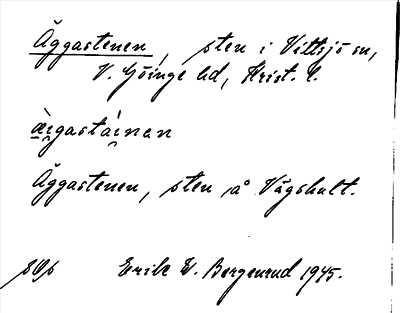 Äggastenen, sten i Vittsjö sn,
V. Göinge hd, Krist. l.
àigastàinan
Äggastenen, sten å Vägshult.
Erik W. Bergenrud 1945.